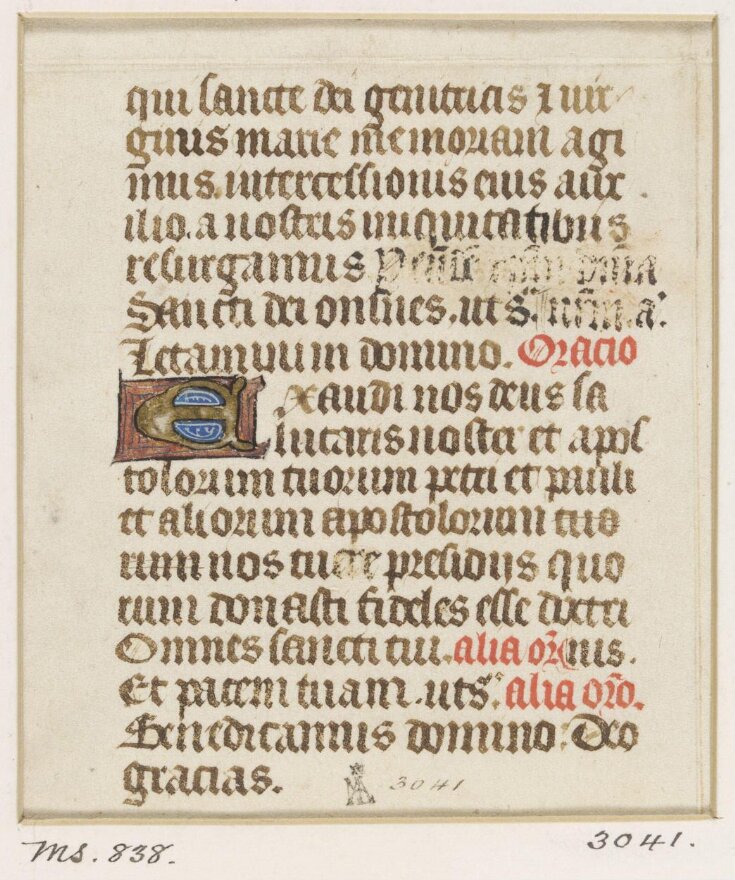 qui sancte dei genitricis ⁊ uir
ginis marie mēmoriam agi
mus. intercessionis eius aux
ilio. a nostris iniquitatibus
resurgamus
Sancti dei om̄nes. ut sͣ.
Letamini in domino. Oracio
Exaudi nos deus sa
lutaris noster et apos
tolorum tuorum petri et pauli
et aliorum apostolorum tuo
rum nos tuere presidijs quo
rum donasti fideles esse dixtri
Omnes sancti tui. alia or̄ nis.
Et pacem tuam. ut sͣ. alia or̄o.
Benedicamus domino. Deo
gracias.
3041
Ms. 838.
3041.